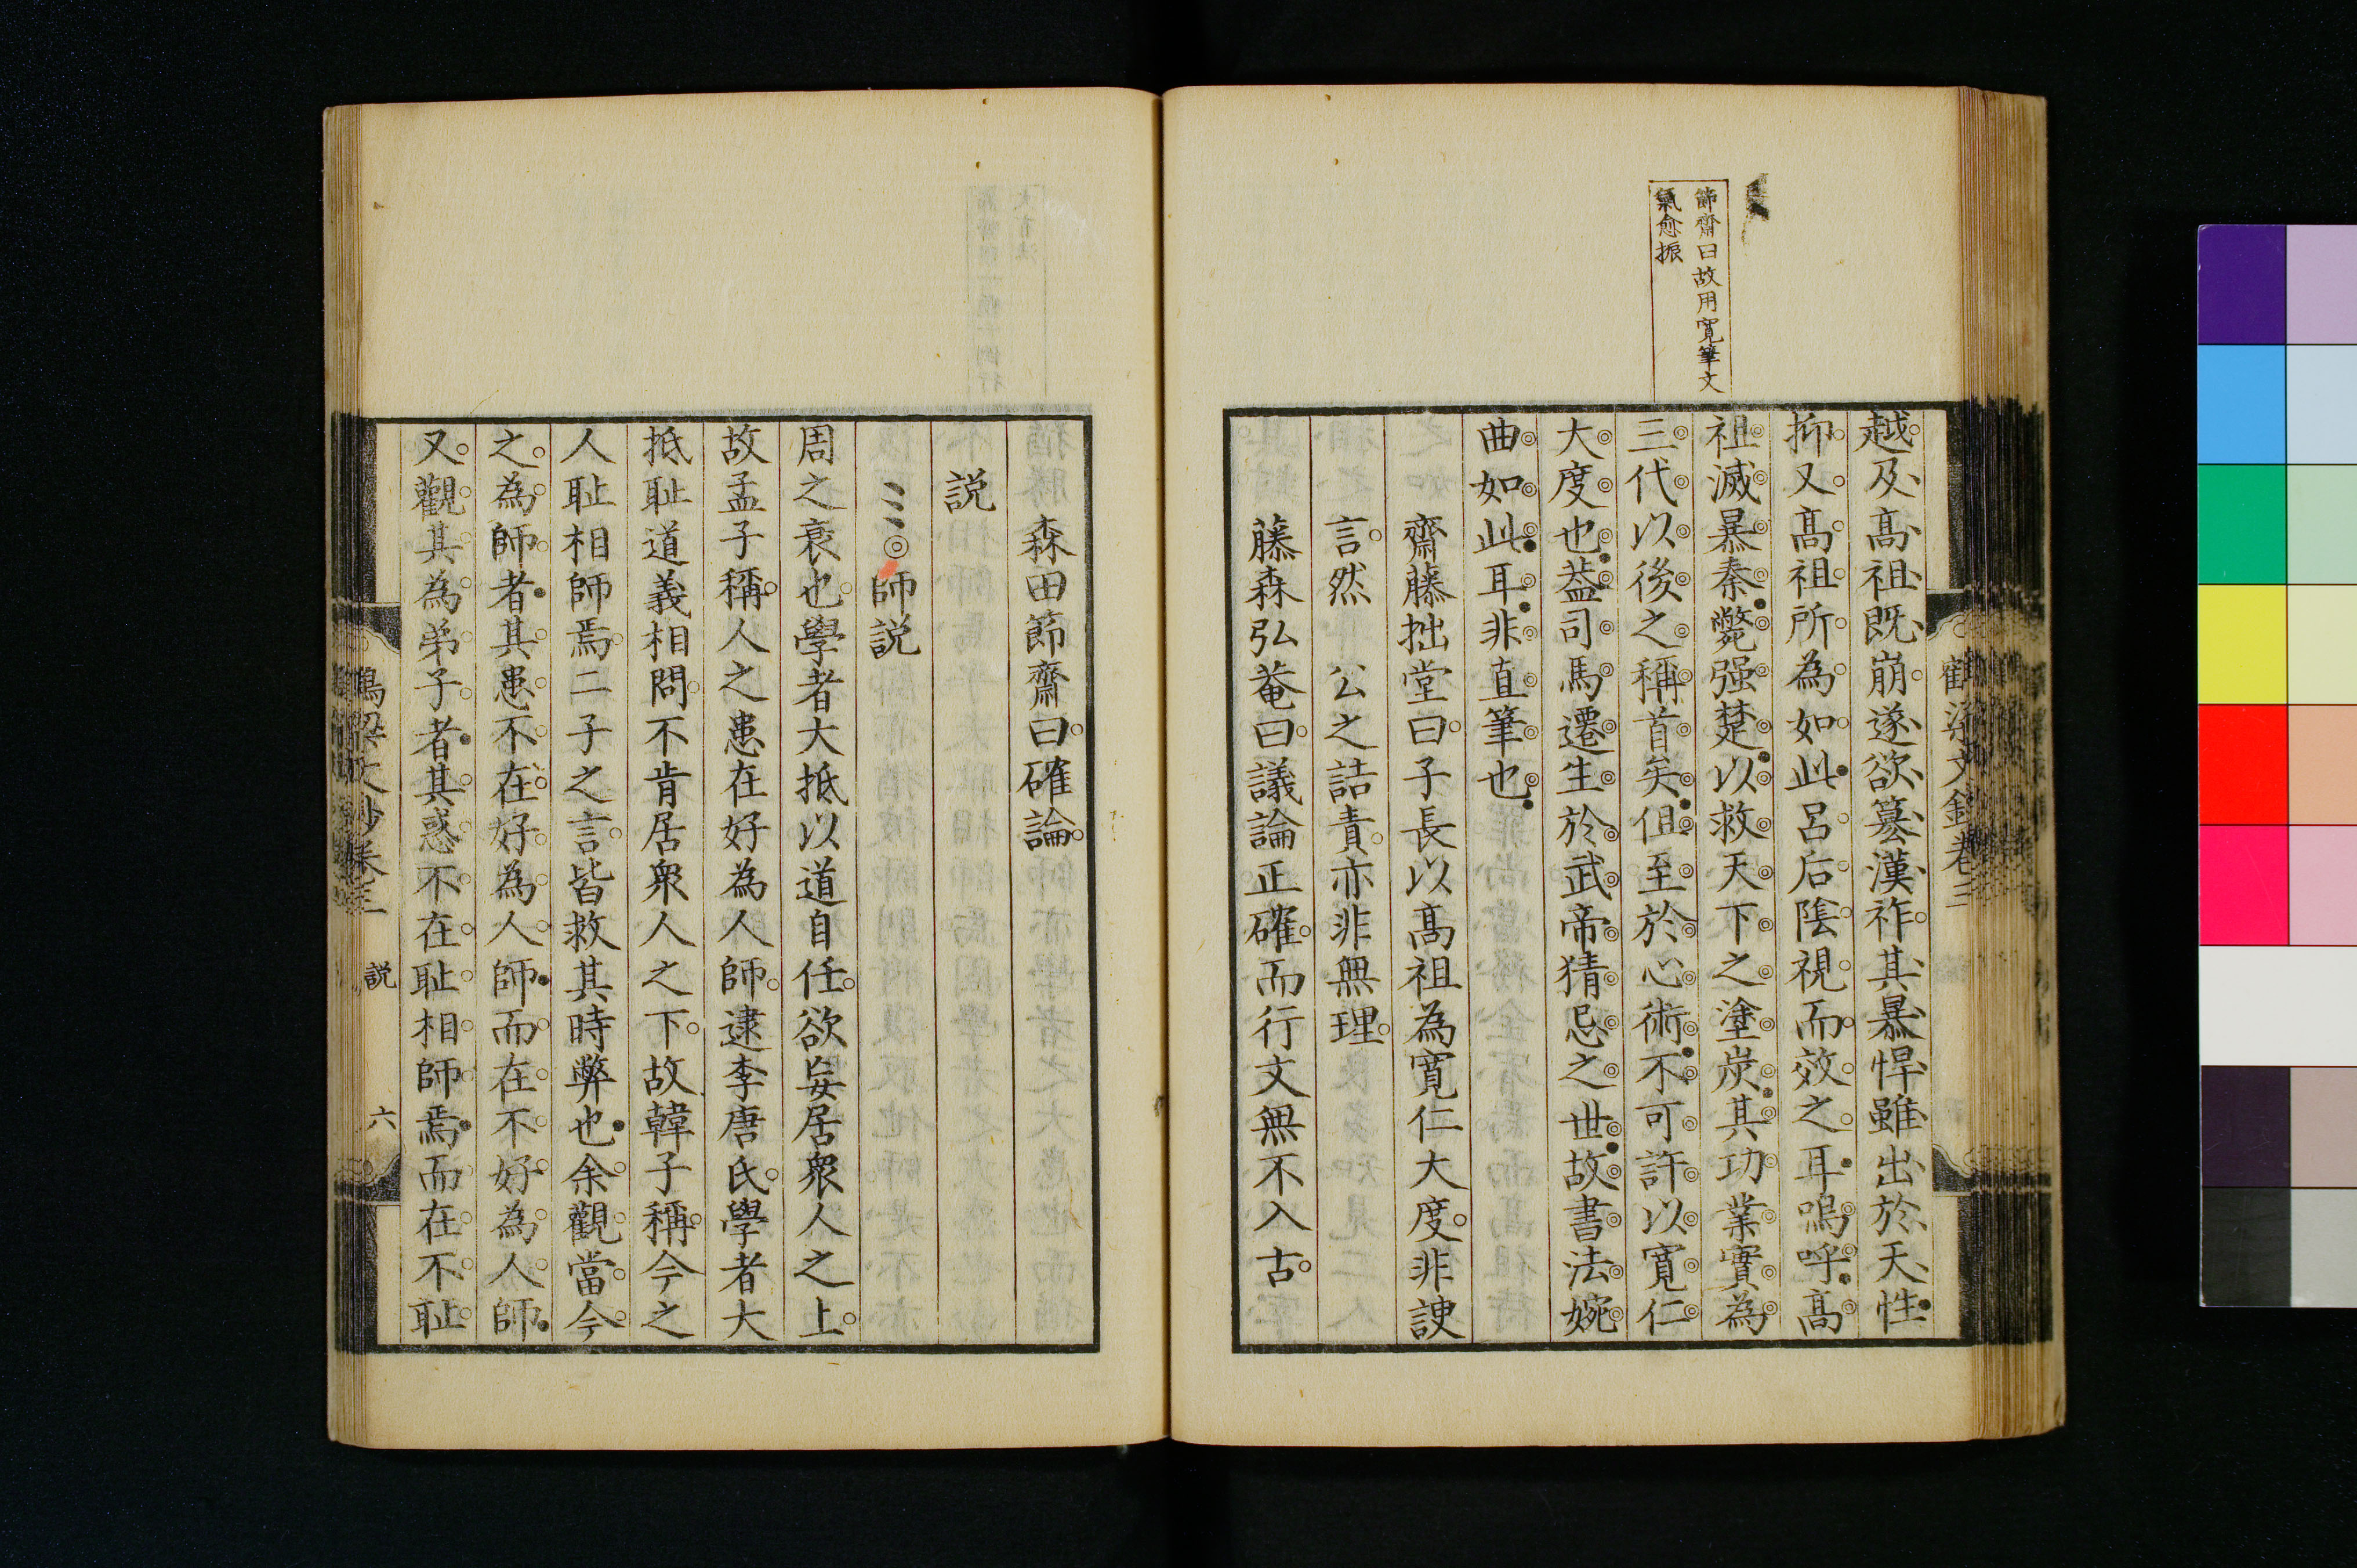 節齋曰故用寬筆文
氣愈振
越及高祖既崩遂欲簒漢祚其暴悍雖出於天性
抑又高祖所為如此呂后陰視而效之耳嗚呼高
祖滅暴秦斃强楚以救天下之塗炭其功業實為
三代以後之稱首矣但至於心術不可許以寬仁
大度也葢司馬遷生於武帝猜忌之世故書法婉
曲如此耳非直筆也
齋藤拙堂曰子長以高祖為寬仁大度非諛
言然 公之詰責亦非無理
藤森弘菴曰議論正確而行文無不入古
森田節齋曰確論
説
師説
周之衰也學者大抵以道自任欲妄居衆人之上
故孟子稱人之患在好為人師逮李唐氏學者大
抵耻道義相問不肯居衆人之下故韓子稱今之
人耻相師焉二子之言皆救其時弊也余觀當今
之為師者其患不在好為人師而在不好為人師
又觀其為弟子者其惑不在耻相師焉而在不耻
説
六